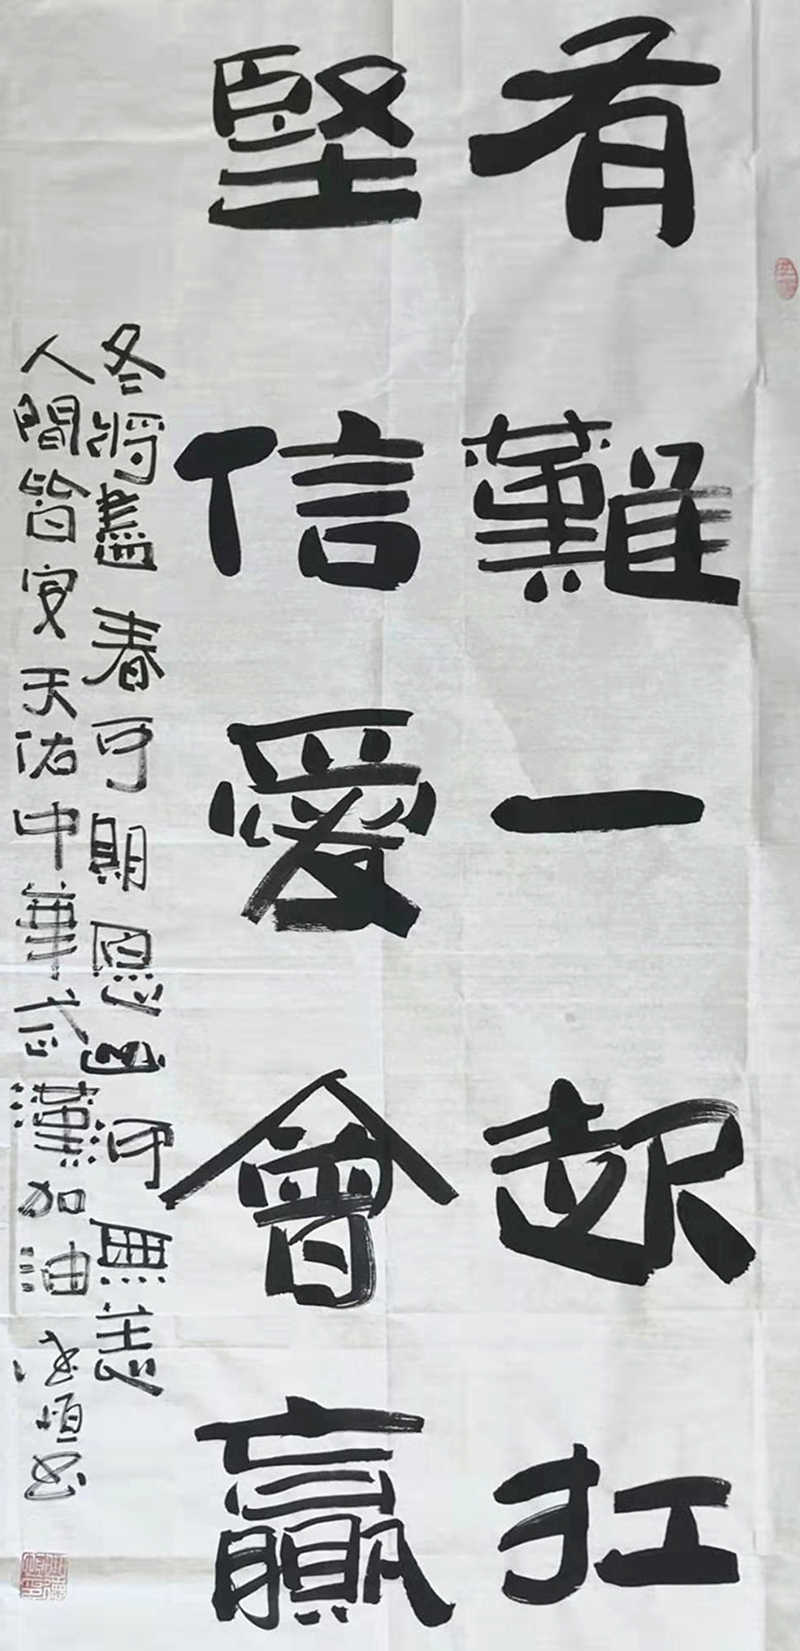 有難一起扛
堅信愛會贏
冬將盡春可期愿山河無恙
人間皆安天佑中華武漢加油
恒书